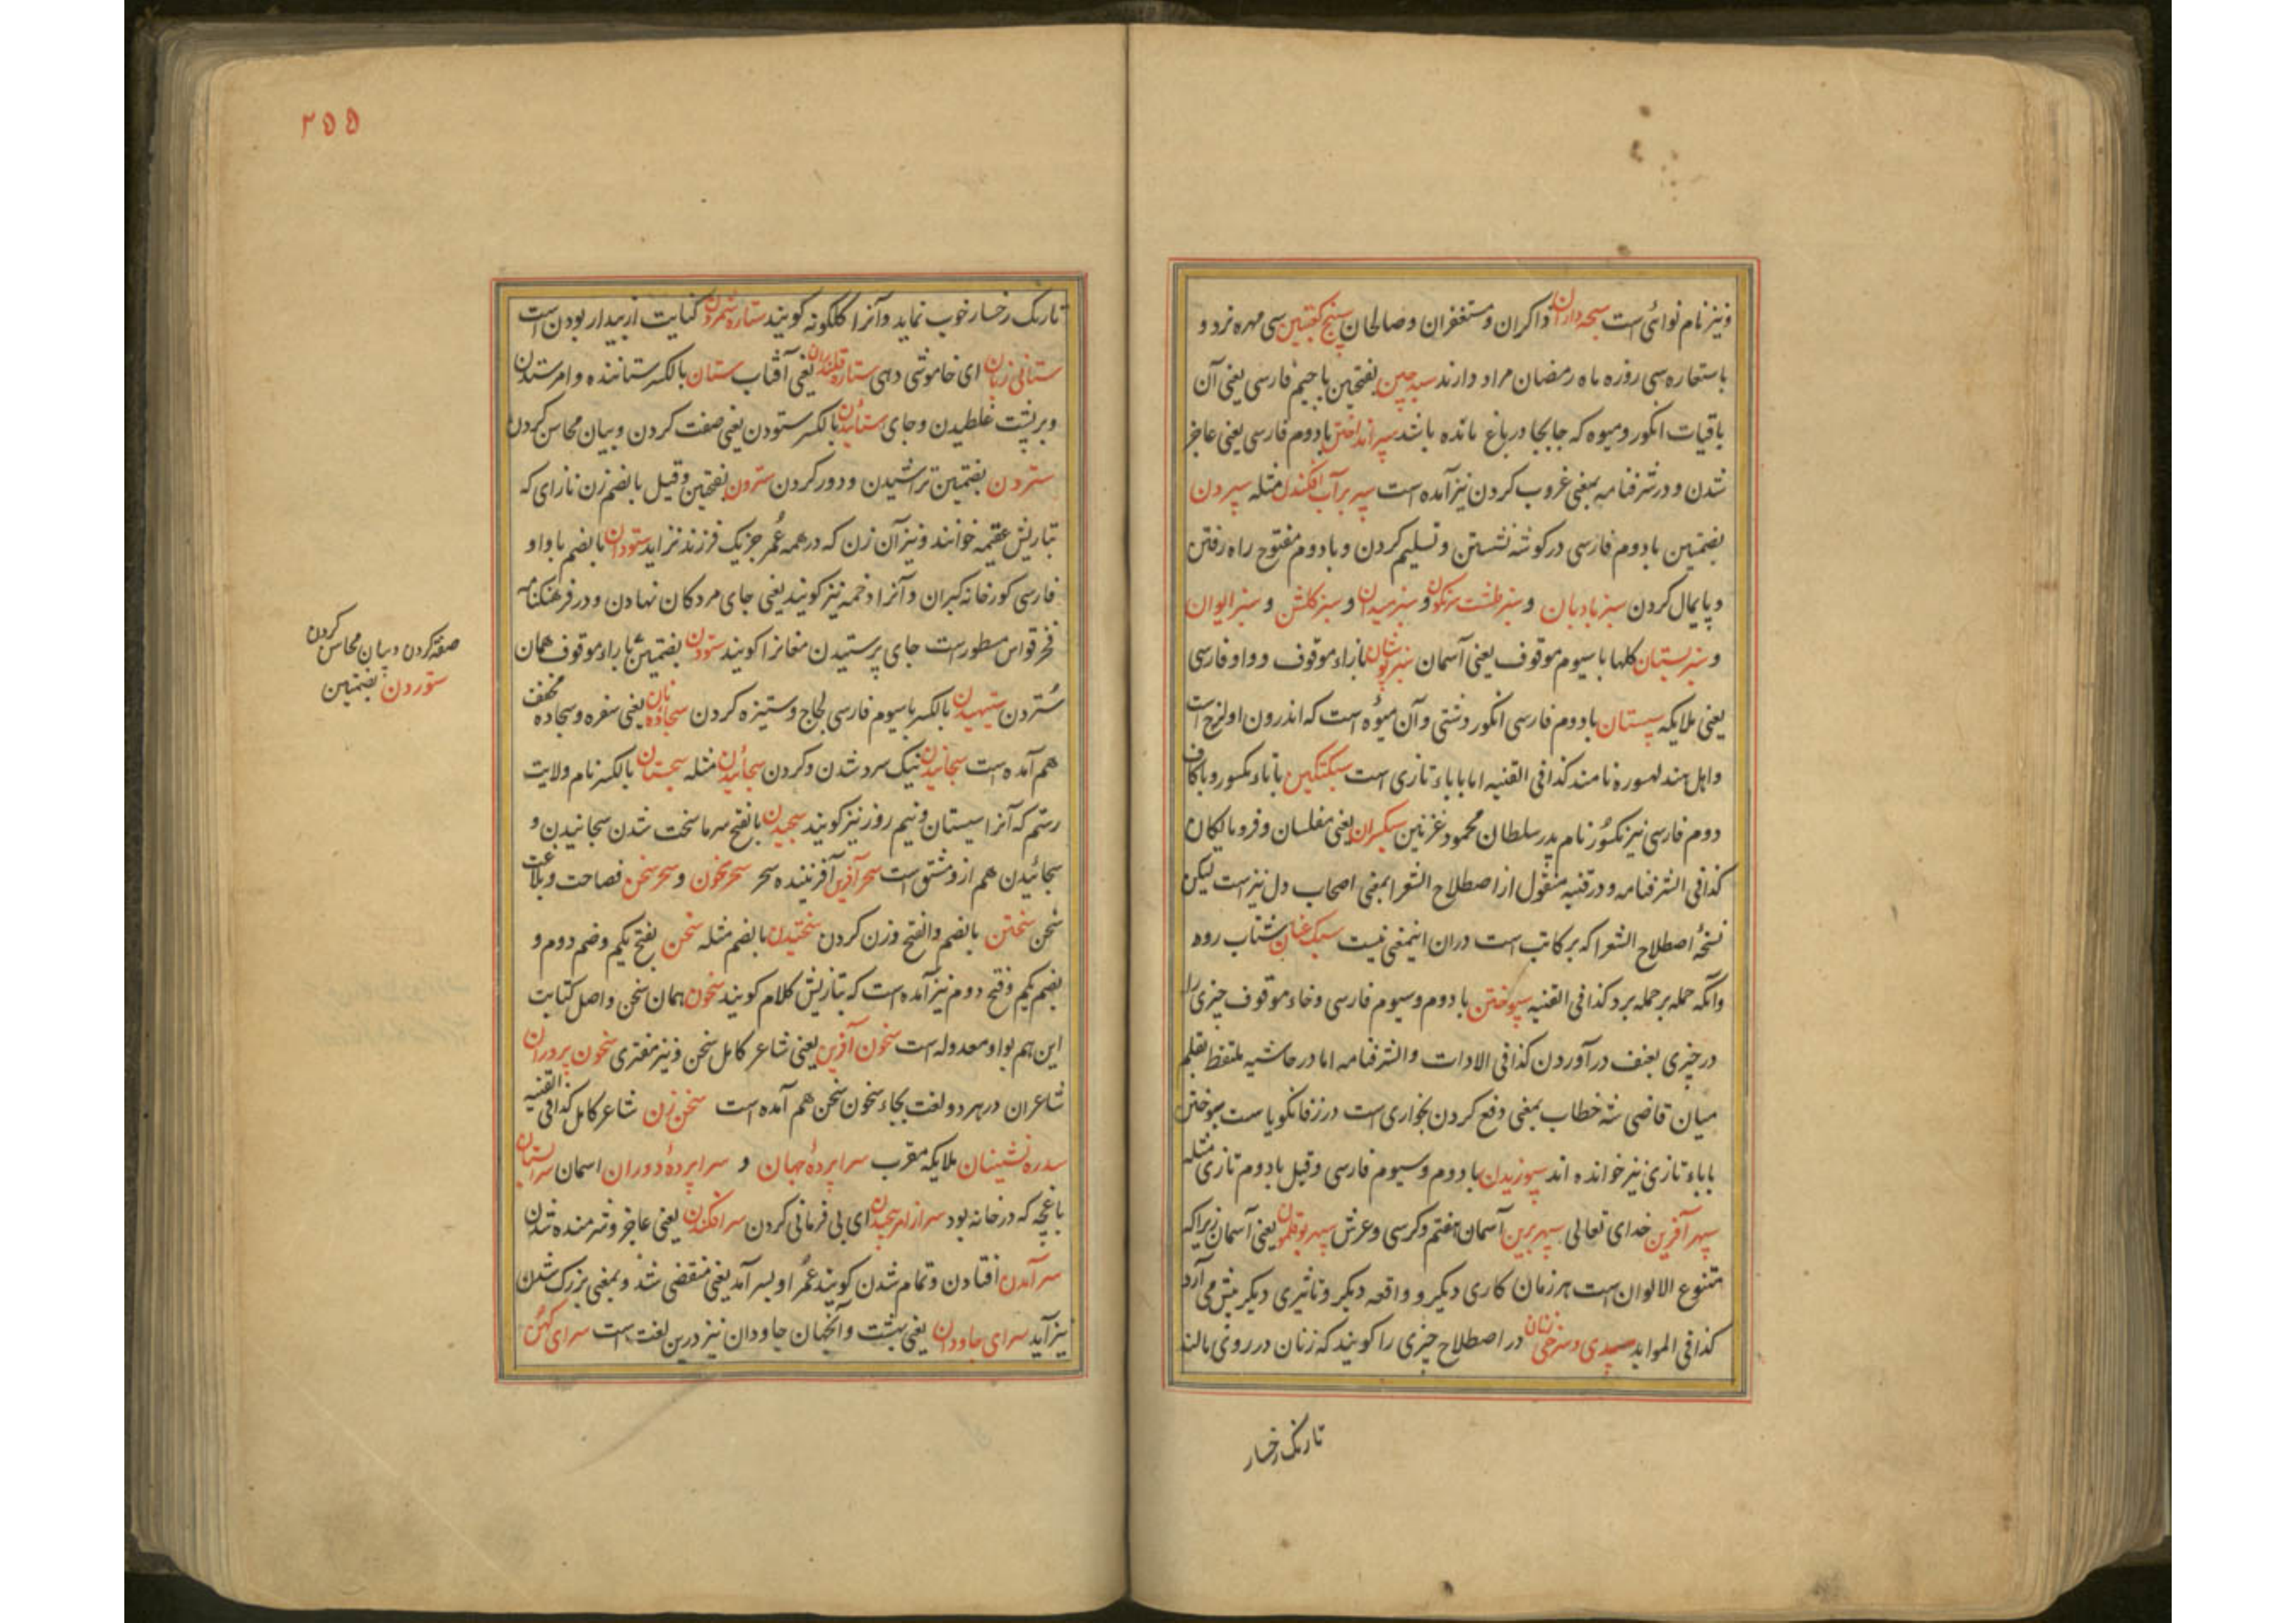 ونیز نام نوائی است سبحه داران ذاکران و مستغفران و صالحان سنج کعبتین سی مهره نرد و
باستعاره سی روزه ماه رمضان مراد دارند سپه چین بفتحتین با جیم فارسی یعنی آن
باقیات انگور و میوه که جابجا در باغ مانده باشد سپر انداختن با دوم فارسی یعنی عاجز
شدن و در شرفنامه بمعنی غروب کردن نیز آمده است سپر بر آب افکندن مثله سپردن
بضمتین با دوم فارسی در کوشه نشستن و تسلیم کردن و با دوم مفتوح راه رفتن
و پایمال کردن سبز بادبان و سبز طشت سرنکون و سبز میدان و سبز کلشن و سبز ایوان
و سبز بستان کلها با سیوم موقوف یعنی آسمان سبز پوشان با زاء موقوف و واو فارسی
یعنی ملایکه سپستان با دوم فارسی انکور دشتی و آن میوه است که اندرون او لزج است
و اهل هند لهسوره نامند کذا فی القنیه اما با باء تازی است سبکتکین با تاء مکسور و با کاف
دوم فارسی نیز مکسور نام پدر سلطان محمود غزنین سبکسران یعنی مفلسان و فرومایکان
کذا فی الشرفنامه و در قنیه منقول از اصطلاح الشعرا بمعنی اصحاب دل نیز است لیکن
نسخهٔ اصطلاح الشعرا که بر کاتب است دران اینمعنی نیست سبک عنان شتاب رو
وانکه حمله بر حمله برد کذا فی القنیه سپوختن با دوم و سیوم فارسی و خاء موقوف چیزی را
در چیزی بعنف در آوردن کذا فی الادات و الشرفنامه اما در حاشیه ملتقط بقلم
میان قاضی شه خطاب بمعنی دفع کردن بخواری است در زفانکویا ست سبوختن
با باء تازی نیز خوانده اند سپوزیدن با دوم و سیوم فارسی و قیل با دوم تازی مثله
سپهر آفرین خدای تعالی سپهر برین آسمان هفتم و کرسی و عرش سپهر بوقلمون یعنی آسمان زیراکه
متنوع الالوان است هر زمان کاری دیکر و واقعه دیکر و تاثیری دیکر پیش می آرد
کذا فی الموائد سپیدی و سرخی زنان در اصطلاح چیزی را کویند که زنان در روی مالند
تا رنک رخسار
۲۵۵
تا رنک رخسار خوب نماید و آنرا کلکونه کویند ستاره شمردن کنایت از بیدار بودن است
ستانی زبان ای خاموشی دهی ستاره قلندران یعنی آفتاب ستان بالکسر ستاننده و امر ستدن
و بر پشت غلطیدن و جای ستائیدن بالکسر ستودن یعنی صفت کردن و بیان محاسن کردن
ستردن بضمتین تراشیدن و دور کردن سترون بفتحتین و قیل بالضم زن نازای که
بتازیش عقیمه خوانند و نیز آن زن که در همه عمر جز یک فرزند نزاید ستودان بالضم با واو
فارسی کورخانه کبران و آنرا دخمه نیز کویند یعنی جای مردکان نهادن و در فرهنکنامه
فخر قواس مسطور است جای پرستیدن مغانرا کویند ستودن بضمتین با راء موقوف همان
ستردن ستیهیدن بالکسر با سیوم فارسی لجاج و ستیزه کردن سجاده نان یعنی سفره و سجاده مخفف
هم آمده است سجانیدن نیک سرد شدن و کردن سجائیدن مثله سجستان بالکسر نام ولایت
رستم که آنرا سیستان و نیم روز نیز کویند سجیدن بالفتح سرما سخت شدن سجانیدن و
سجائیدن هم ازو مشتق است سحر آفرین آفریننده سحر سحر مخون و سحر سخن فصاحت و بلاغت
سخن سختن بالضم و الفتح وزن کردن سختیدن بالضم مثله سخن بفتح یکم و ضم دوم و
بضم یکم و فتح دوم نیز آمده است که بتازیش کلام کویند سخون همان سخن و اصل کتابت
این هم بواو معدوله است سخون آفرین یعنی شاعر کامل سخن و نیز مفتری سخون پروران
شاعران در هر دو لغت بجاء سخون سخن هم آمده است سخن زن شاعر کامل کذا فی القنیه
سدره نشینان ملایکه مقرب سراپردهٔ جهان و سراپردهٔ دوران اسمان سرابستان
باغچه که در خانه بود سر از امر پیچیدن ای بی فرمانی کردن سر افکندن یعنی عاجز و شرمنده شدن
سر آمدن افتادن و تمام شدن کویند عمر او بسر آمد یعنی منقضی شد و بمعنی بزرک شدن
نیز آید سرای جاودان یعنی بهشت و آنجهان جاودان نیز درین لغت است سرای کهن
صفة کردن و بیان محاسن کردن
ستوردن بضمتین